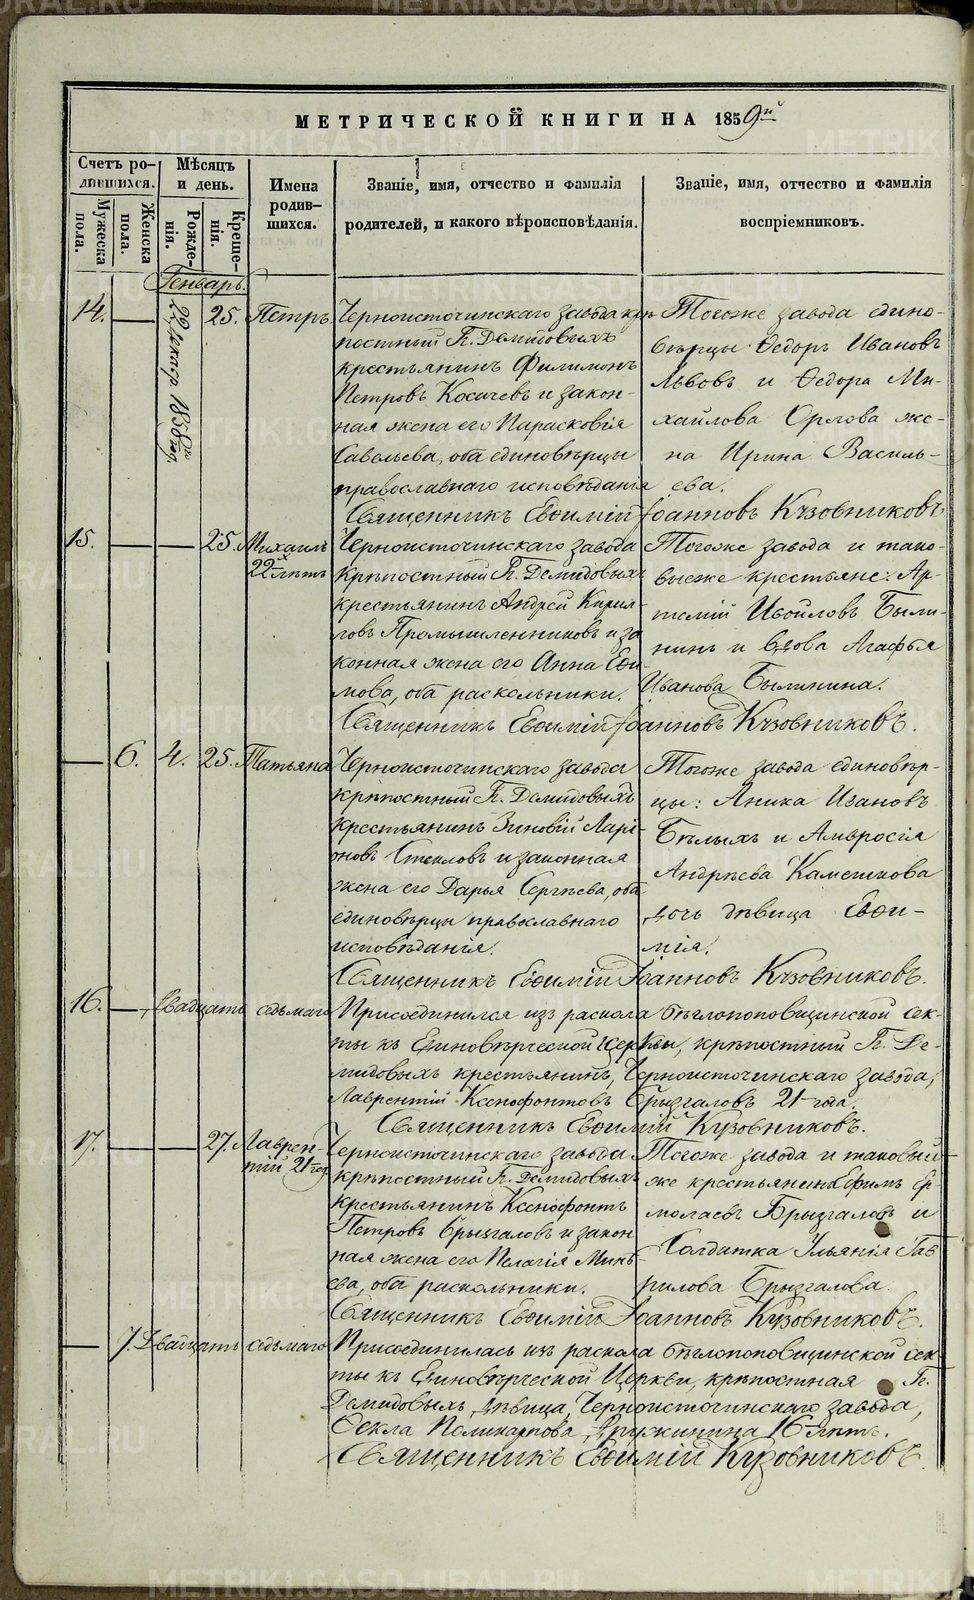 METRIKI.GASO-URAL.RU
МЕТРИЧЕСКОЙ КНИГИ НА 1859й
Счетъ родившихся.
Мужеска пола.
Женска пола.
Мѣсяцъ и день.
Рожденія.
Крещенія.
Имена родившихся.
Званіе, имя, отчество и фамилія
родителей, и какого вѣроисповѣданія.
Званіе, имя, отчество и фамилія
воспріемниковъ.
Генварь.
14.
22 декабр. 1858 год.
25.
Петръ
Черноисточинскаго завода крѣ
постный Г. Демидовыхъ
крестьянинъ Филимонъ
Петровъ Косичевъ и закон-
ная жена его Парасковія
Савельева, оба единовѣрцы
православнаго исповѣданія
Тогоже завода едино-
вѣрцы Ѳедоръ Ивановъ
Львовъ и Ѳедора Ми-
хайлова Орлова же-
на Ирина Василь-
ева.
Священникъ Евѳимій Іоанновъ Кузовниковъ
15.
25.
Михаилъ
22хлѣтъ
Черноисточинскаго завода
крѣпостный Г. Демидовыхъ
крестьянинъ Андрей Кирил-
ловъ Промышленниковъ и за
конная жена его Анна Еѳи-
мова, оба раскольники.
Тогоже завода и тако-
выеже крестьяне: Ар-
темій Ивойловъ Были-
нинъ и вдова Агафья
Иванова Былинина.
Священникъ Евѳимій Іоанновъ Кузовниковъ.
6.
4.
25.
Татьяна
Черноисточинскаго завода
крѣпостный Г. Демидовыхъ
крестьянинъ Зиновій Ларі-
оновъ Стекловъ и законная
жена его Дарья Сергѣева, оба
единовѣрцы православнаго
исповѣданія.
Тогоже завода единовѣр-
цы: Аника Ивановъ
Бѣлыхъ и Амвросія
Андрѣева Камешкова
дочь дѣвица Евѳи-
мія.
Священникъ Евѳимій Іоанновъ Кузовниковъ.
16.
Двадцать седьмаго
Присоединился изъ раскола бѣглопоповщинской сек-
ты къ Единовѣрческой Церкви, крѣпостный Г. Де-
мидовыхъ крестьянинъ, Черноисточинскаго завода,
Лаврентій Ксенофонтовъ Брызгаловъ 21 года.
Священникъ Евѳимій Кузовниковъ.
17.
27.
Лаврен-
тій 21 год.
Черноисточинскаго завода
крѣпостный Г. Демидовыхъ
крестьянинъ Ксенофонтъ
Петровъ Брызгаловъ и закон
ная жена его Пелагія Минѣ
ева, оба раскольники.
Тогоже завода и таковый
же крестьянинъ Ефимъ Ер-
молаевъ Брызгаловъ и
Солдатка Ульянія Гав
рилова Брызгалова.
Священникъ Евѳимій Іоанновъ Кузовниковъ.
7.
Двадцать седьмаго
Присоединилась изъ раскола бѣглопоповщинской сек-
ты къ Единовѣрческой Церкви, крѣпостная Г.
Демидовыхъ, дѣвица, Черноисточинскаго завода,
Ѳекла Поликарпова Дружинина 16 лѣтъ.
Священникъ Евѳимій Кузовниковъ.
METRIKI.GASO-URAL.RU